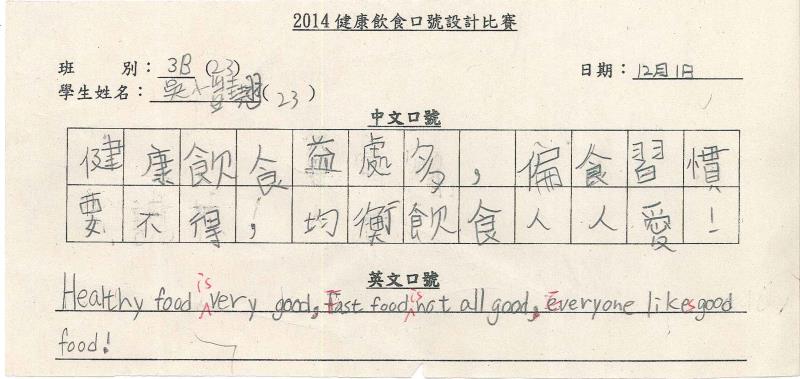 2014 健康飲食口號設計比賽
班 別： 3B (23)
日期： 12月1日
學生姓名： 吳 (23)
中文口號
健康飲食益處多，偏食習慣
要不得，均衡飲食人人愛！
英文口號
Healthy food is very good. Fast food is not all good. Everyone likes good
food!